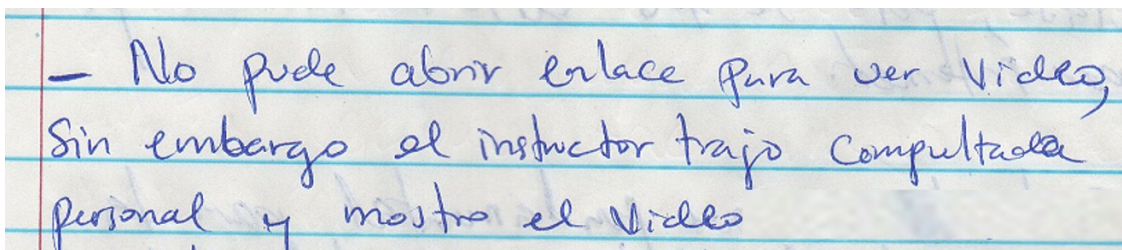 - No pude abrir enlace para ver Video,
Sin embargo el instructor trajo Compultada
personal y mostro el Video